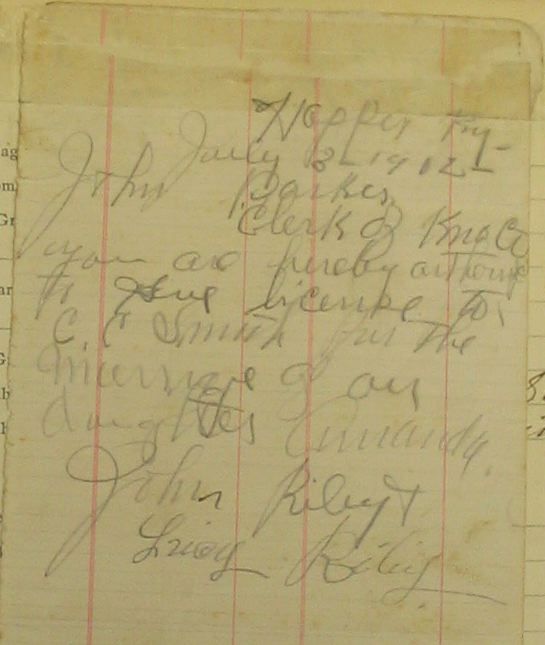 Hopper Ky-
July 13-1912-
John Parker
Clerk of Knox Co
you are hereby authorize
to issue license to
C C Smith for the
marriage of our
daughter Amanda.
John Riley +
Riley
ag
om
Gr
ar
G
b